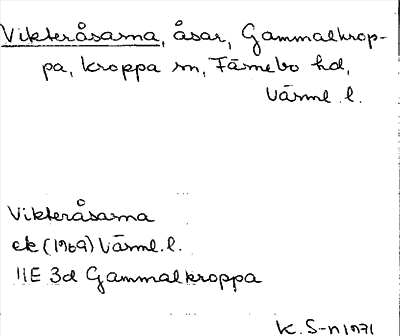 Vikteråsarna, åsar, Gammalkrop-
pa, Kroppa sn, Färnebo hd,
Värml. l.
Vikteråsarna
ek (1969) Värml. l.
11E 3d Gammalkroppa
K. S-n 1971